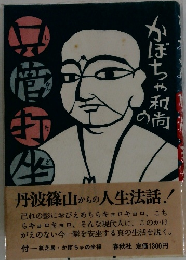 かぼちゃ和尚の
只管打坐
丹波篠山からの人生法話!
己れの影におびえもちらキョロキョロ、こち
らキョロキョロ、そんな現代人に、このかけ
がえのない今一時を安坐する真の生活を説く。
春秋社 定価1300円